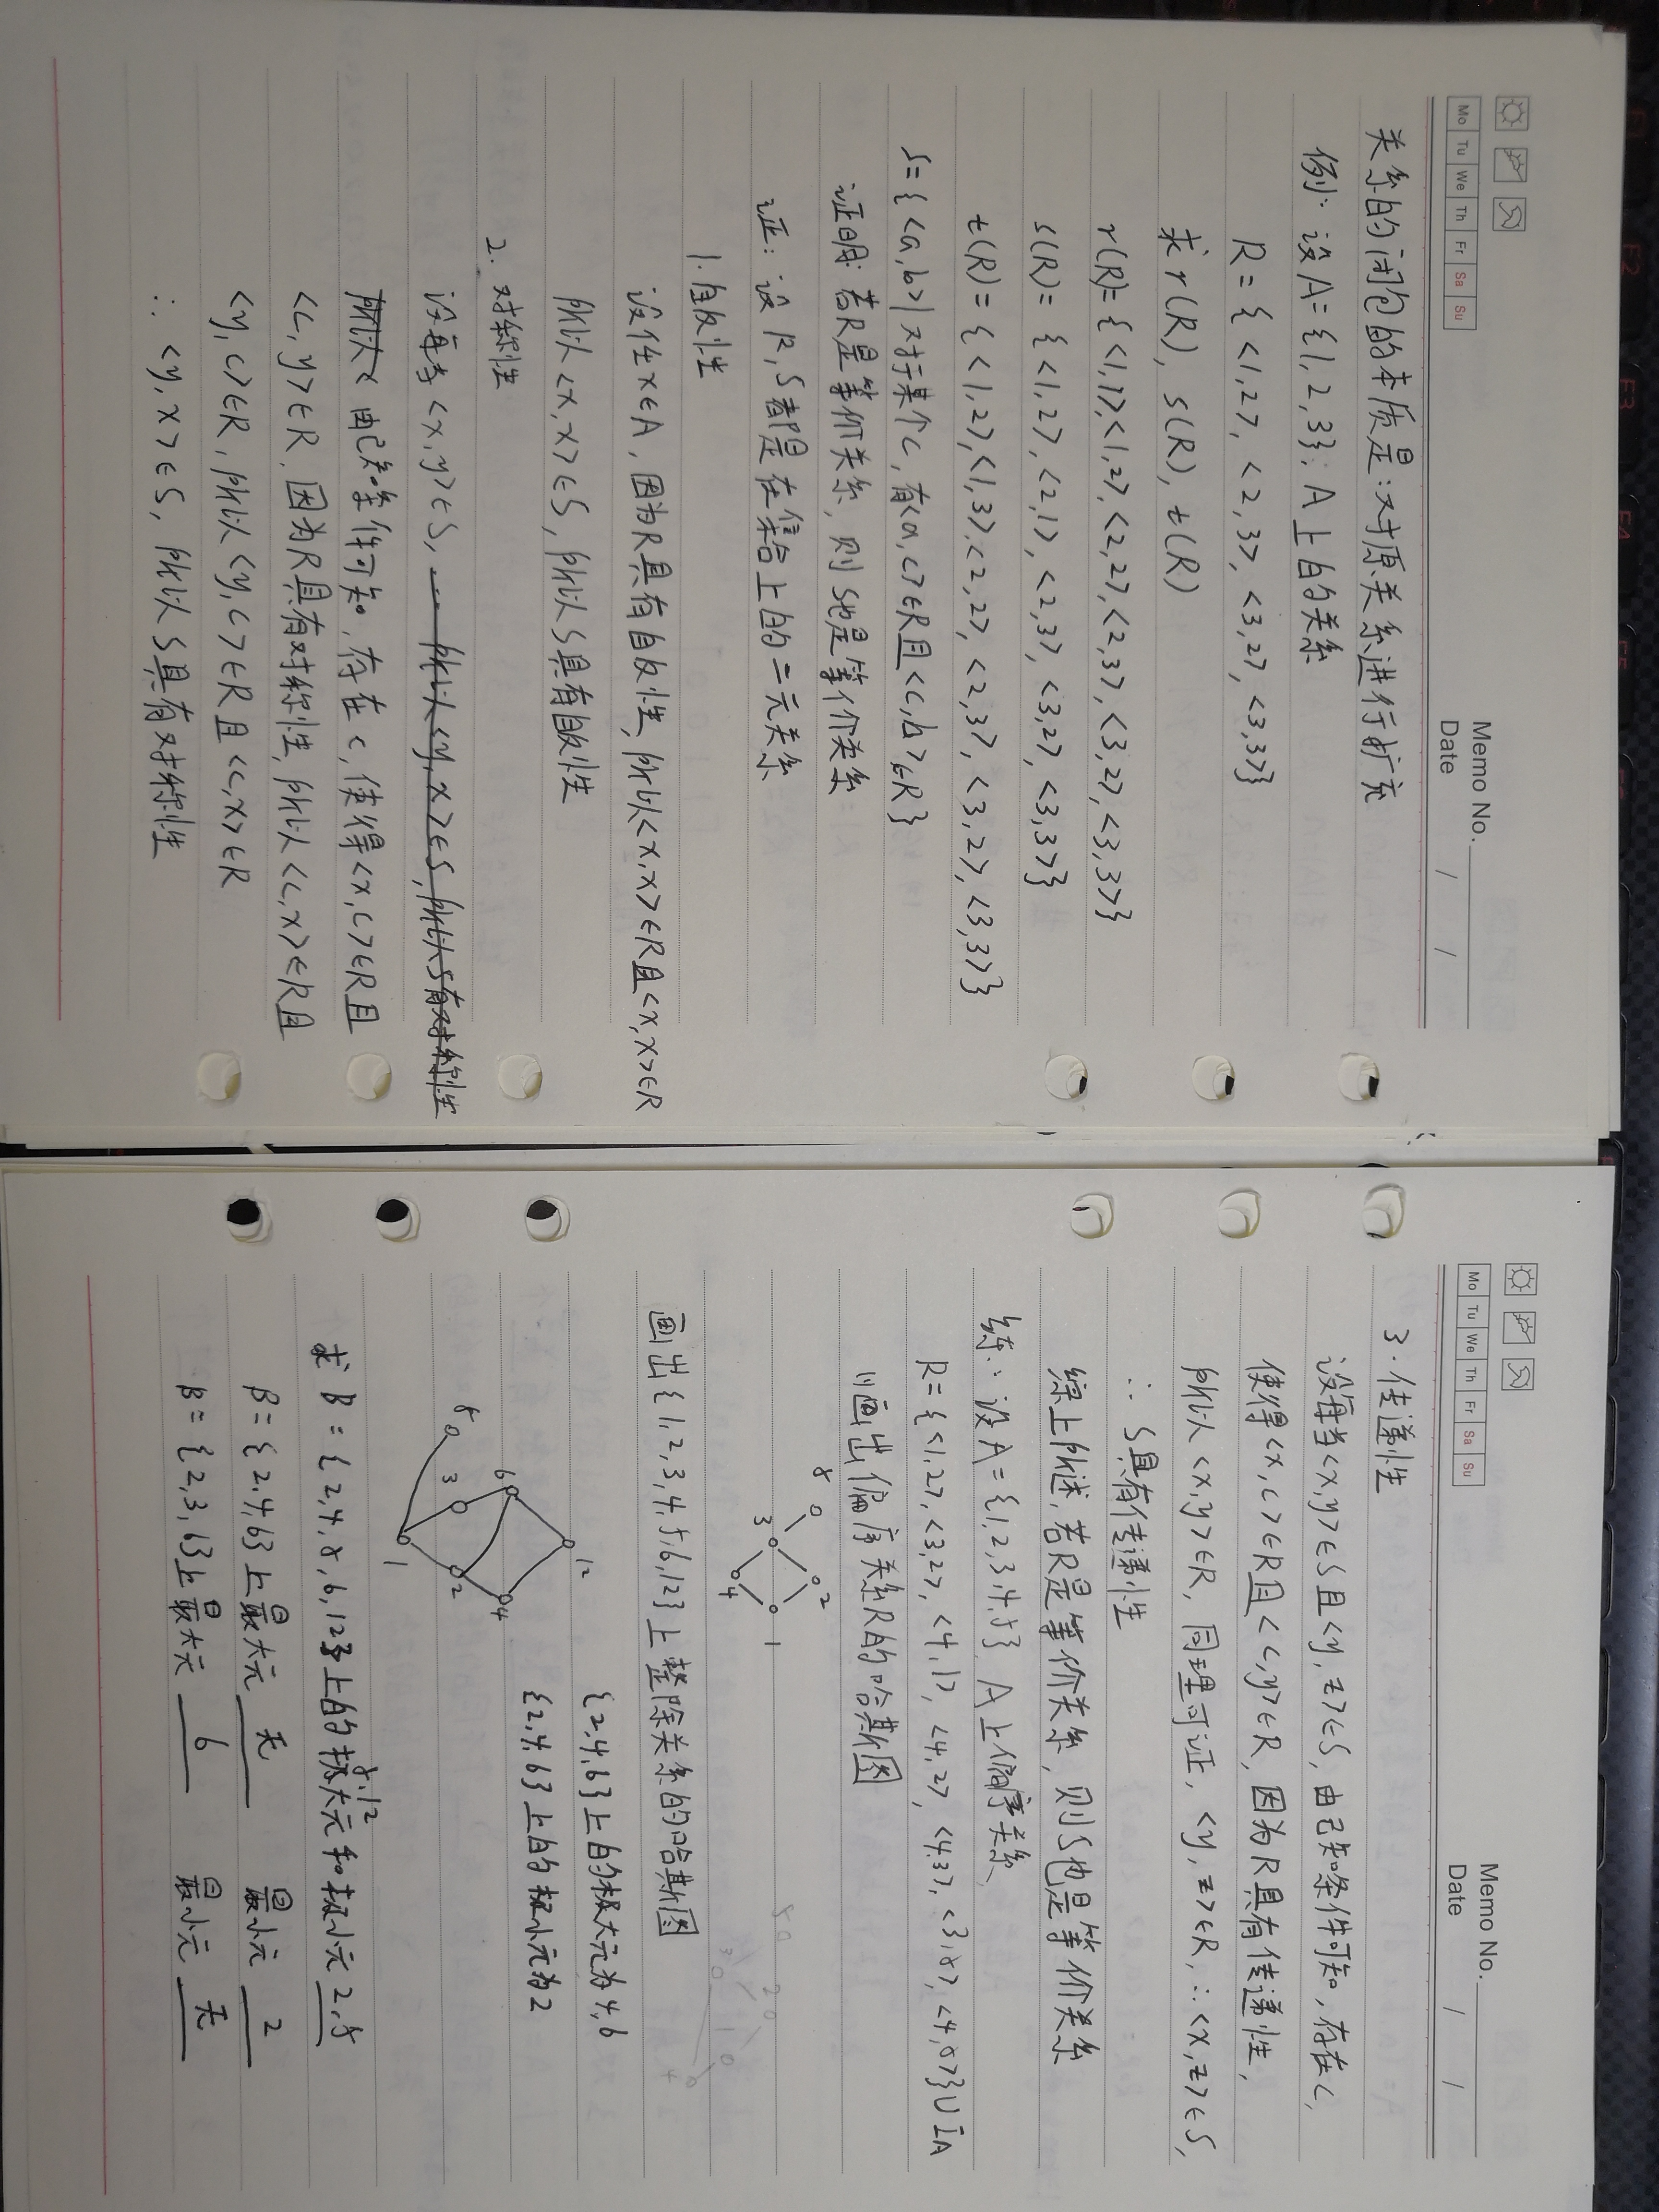 Mo Tu We Th Fr Sa Su
Memo No.
Date / /
关系的闭包的本质是:对原关系进行扩充
例: 设A={1,2,3}; A上的关系
R={<1,2>, <2,3>, <3,2>, <3,3>}
求r(R), s(R), t(R)
r(R)={<1,1>,<1,2>,<2,2>,<2,3>,<3,2>,<3,3>}
s(R)={<1,2>,<2,1>,<2,3>,<3,2>,<3,3>}
t(R)={<1,2>,<1,3>,<2,2>,<2,3>,<3,2>,<3,3>}
S={<a,b>|对于某个c,有<a,c>∈R且<c,b>∈R}
证明: 若R是等价关系,则S也是等价关系
证: 设R,S都是在集合上的二元关系
1. 自反性
设任x∈A, 因为R具有自反性,所以<x,x>∈R且<x,x>∈R
所以<x,x>∈S,所以S具有自反性
2. 对称性
设每当<x,y>∈S, ... 所以<y,x>∈S,所以S有对称性
所以< 由已知条件可知,存在c,使得<x,c>∈R且
<c,y>∈R,因为R具有对称性,所以<c,x>∈R且
<y,c>∈R,所以<y,c>∈R且<c,x>∈R
∴ <y,x>∈S, 所以S具有对称性
F2 F3 F4 F5 F6
Mo Tu We Th Fr Sa Su
Memo No.
Date / /
3. 传递性
设每当<x,y>∈S且<y,z>∈S,由已知条件可知,存在c,
使得<x,c>∈R且<c,y>∈R,因为R具有传递性,
所以<x,y>∈R,同理可证,<y,z>∈R,∴<x,z>∈S,
∴ S具有传递性
综上所述,若R是等价关系,则S也是等价关系
练: 设A={1,2,3,4,5}, A上偏序关系
R={<1,2>,<3,2>,<4,1>,<4,2>,<4,3>,<3,5>,<4,5>}∪IA
(1)画出偏序关系R的哈斯图
5 2
3 1
4
画出{1,2,3,4,5,6,12}上整除关系的哈斯图
{2,4,6}上的极大元为4,6
{2,4,6}上的极小元为2
12
6 4
5 3 2
1
5,12
求B={2,4,5,6,12}上的极大元和极小元 2,5
B={2,4,6}上最大元 无 最小元 2
B={2,3,6}上最大元 6 最小元 无